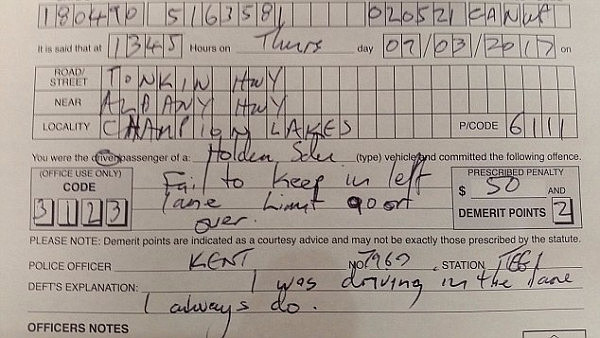 180490 5163581 020521 CANW
It is said that at 1345 Hours on Thurs day 07/03/2017 on
ROAD/STREET TONKIN HWY
NEAR ALBANY HWY
LOCALITY CHAMPION LAKES P/CODE 6111
You were the driver/passenger of a: Holden, Sdn (type) vehicle and committed the following offence.
(OFFICE USE ONLY) CODE 3123
Fail to keep in left
lane limit 90 or
over.
PRESCRIBED PENALTY $ 50 AND
DEMERIT POINTS 2
PLEASE NOTE: Demerit points are indicated as a courtesy advice and may not be exactly those prescribed by the statute.
POLICE OFFICER KENT NO. STATION
DEFT'S EXPLANATION: I was driving in the lane
I always do.
OFFICERS NOTES